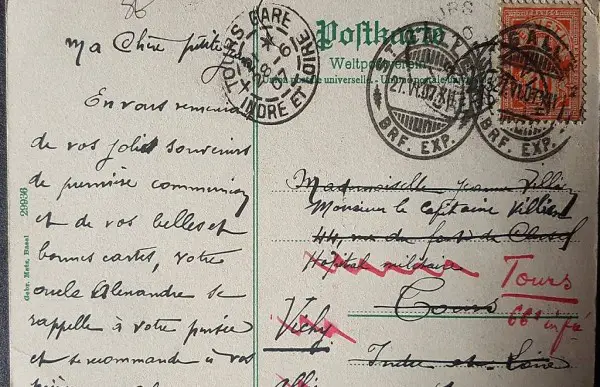 86
Ma Chère petite
En vous remerciant
de vos jolis souvenirs
de première communion
et de vos belles et
bonnes cartes, votre
oncle Alexandre se
rappelle à votre pensée
et se recommande à vos
Gebr. Metz, Basel 29936
TOURS-GARE
28-6
07
INDRE ET LOIRE
Postkarte
Weltpostverein
Union postale universelle.
27.VI.07.XII
BRF. EXP.
GALL
BRF. EXP.
Mademoiselle Jeanne
Monsieur le Capitaine
44, rue du
Hôpital militaire
Tours
Tours
66e infie
Vichy
Indre-et-Loire